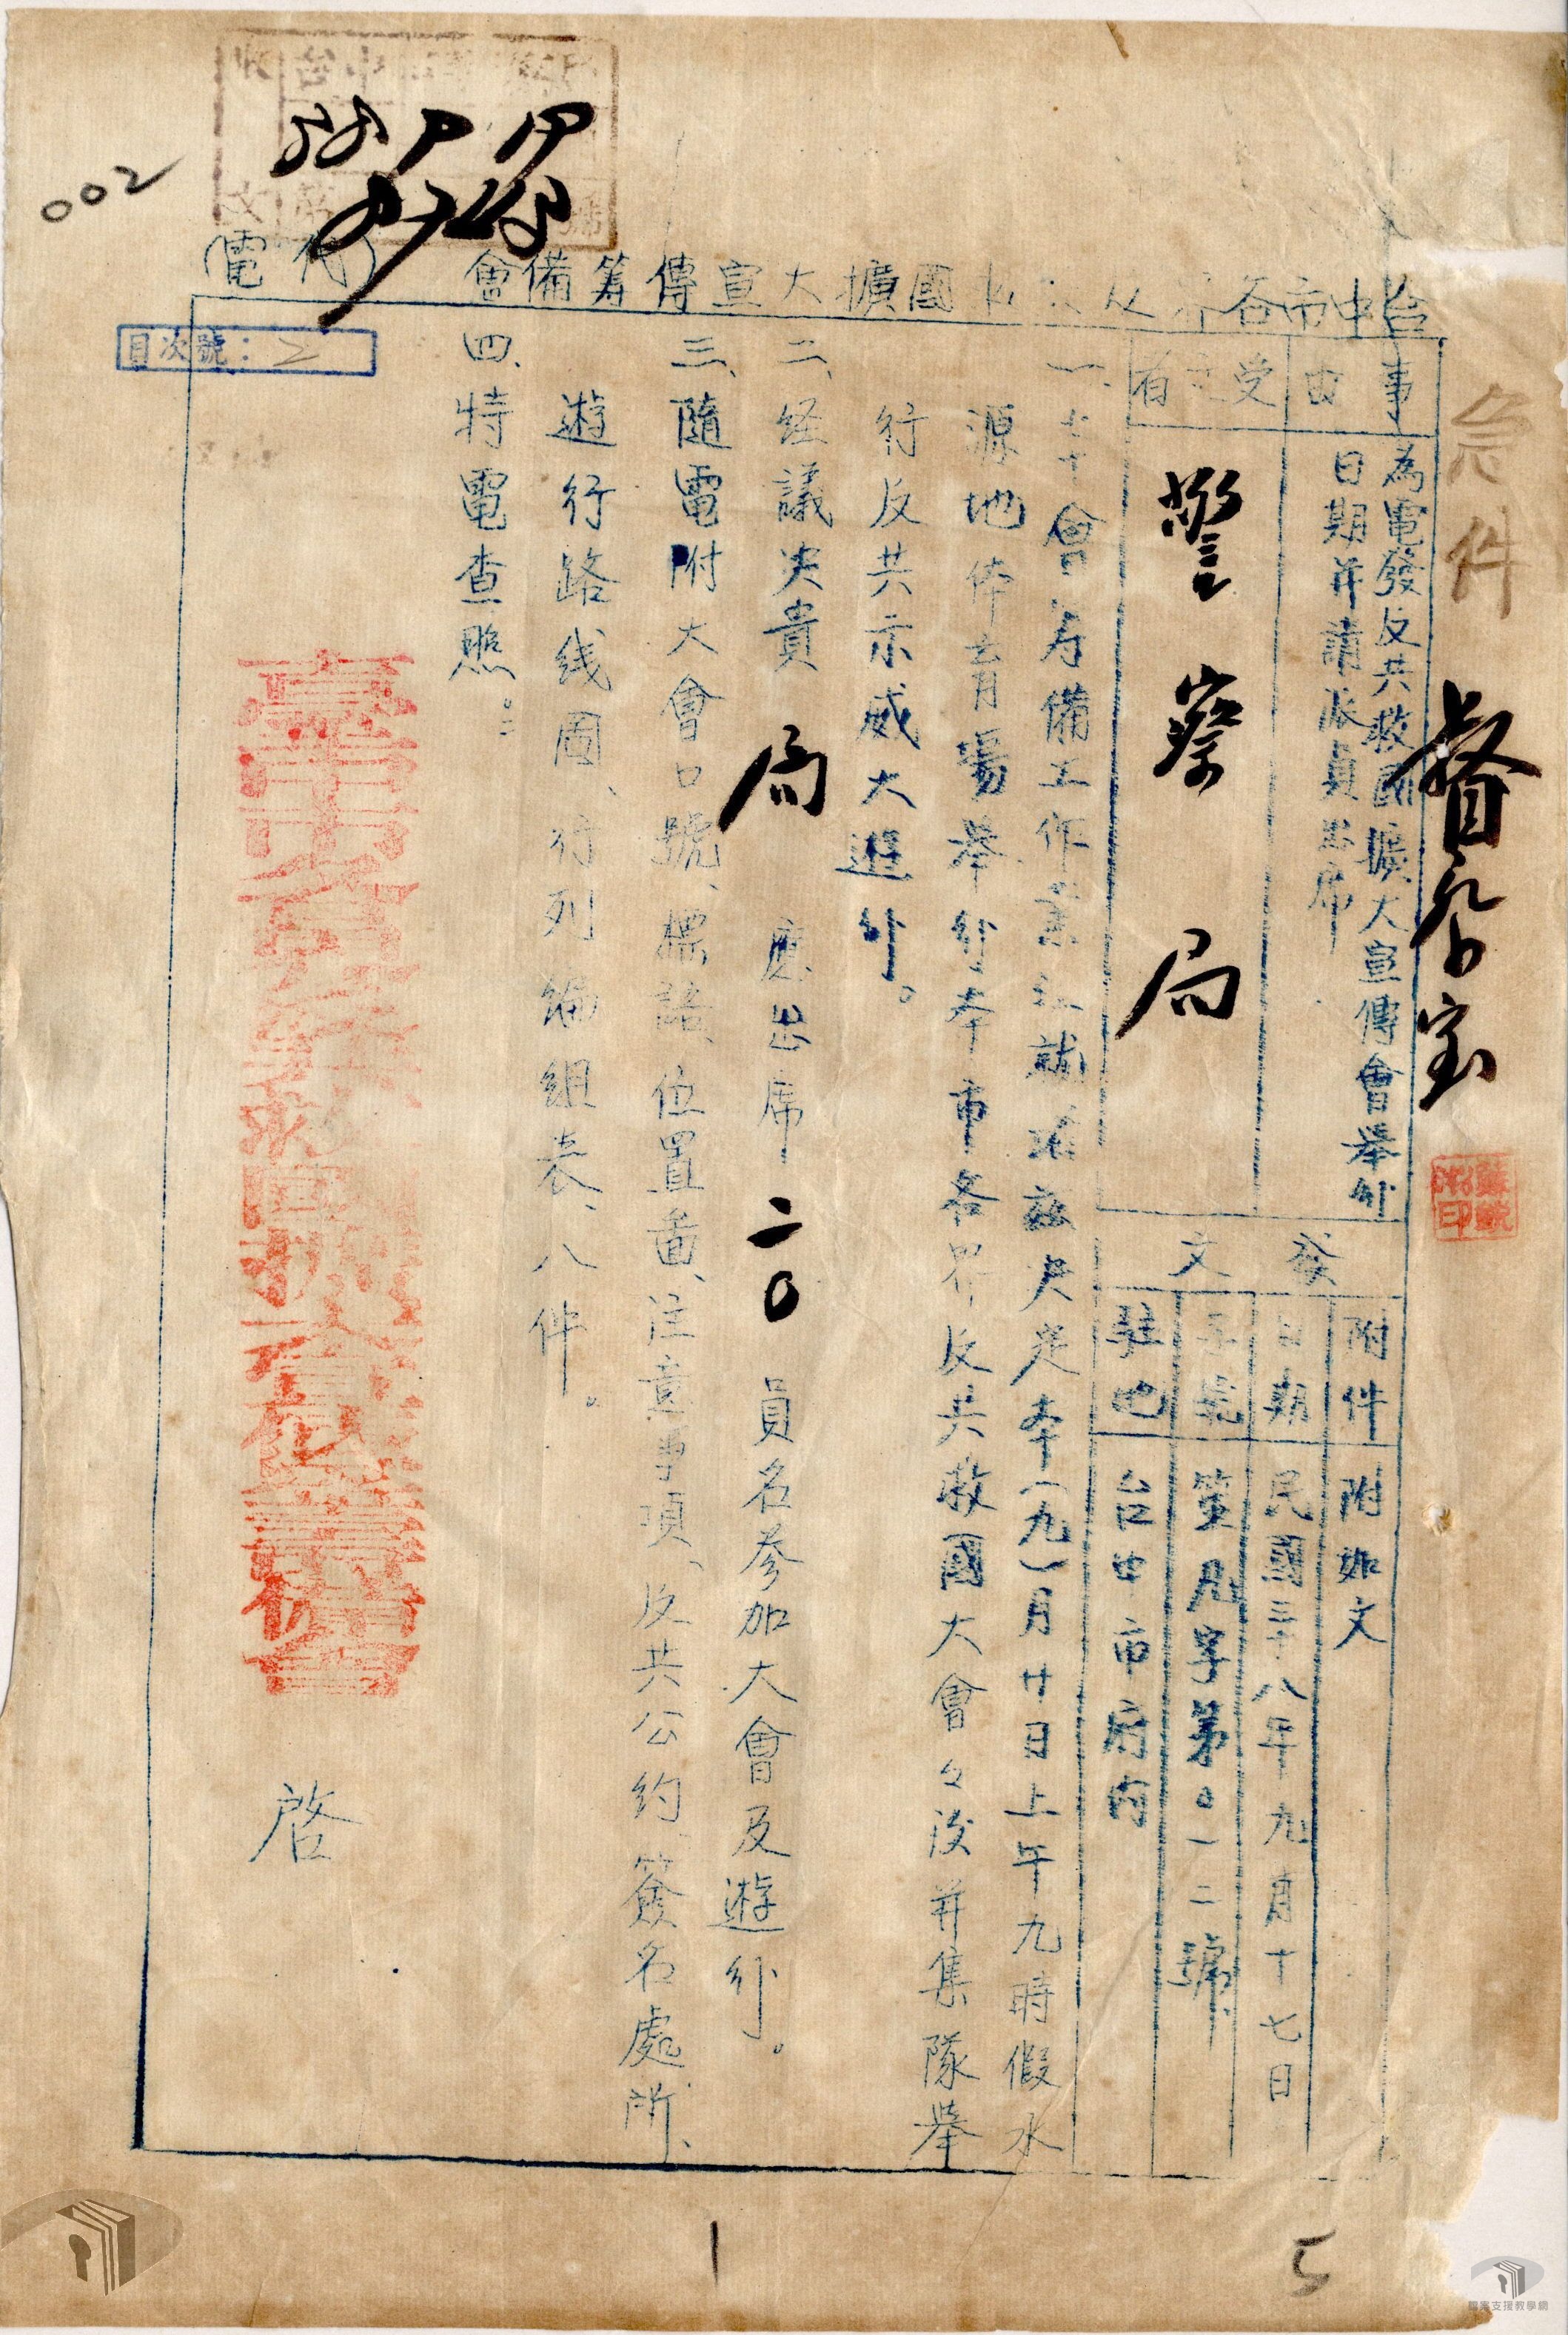 急件
督察室
台中市各界反共救國擴大宣傳籌備會
(代電)
002
目次號：2
事由
為電發反共救國擴大宣傳會舉行
日期并請派員出席
受文者
警察局
發文
附件
附如文
日期
民國三十八年九月十七日
字號
第0一二號
駐地
台中市府內
一、本會籌備工作業經就緒茲定本(九)月廿日上午九時假水
源地体育場舉行本市各界反共救國大會々後并集隊舉
行反共示威大遊行。
二、经議决貴局應出席二0員名參加大會及遊行。
三、隨電附大會口號、標語、位置圖、注意事項、反共公約簽名處所、
遊行路线圖、行列編組表、八件。
四、特電查照。
啓
1
5
檔案支援教學網